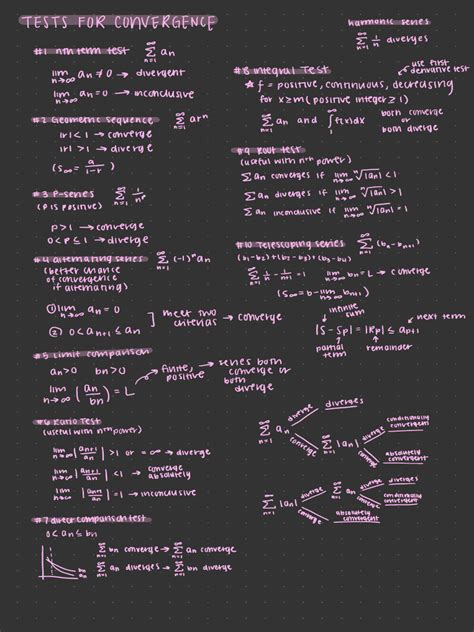 TESTS FOR CONVERGENCE
harmonic series
∞ Σ n=1 1/n diverges
#1 nth term test ∞ Σ n=1 an
lim n→∞ an ≠ 0 → divergent
lim n→∞ an = 0 → inconclusive
#2 Geometric sequence ∞ Σ n=1 arⁿ
|r| < 1 → converge
|r| > 1 → diverge
(S∞ = a/1-r)
#3 P-series ∞ Σ n=1 1/nᵖ
(P is positive)
p > 1 → converge
0 < p ≤ 1 → diverge
#4 alternating series ∞ Σ n=1 (-1)ⁿ an
(better chance
of convergence
if alternating)
① lim n→∞ an = 0
② 0 < an+1 ≤ an
] meet two
criterias → converge
#5 Limit comparison
an>0 bn>0
lim n→∞ (an/bn) = L → finite, positive → series both
converge or
both
diverge
#6 Ratio Test
(useful with nth power)
lim n→∞ |an+1/an| > 1 or = ∞ → diverge
lim n→∞ |an+1/an| < 1 → converge absolutely
lim n→∞ |an+1/an| = 1 → inconclusive
#7 direct comparison test
0 < an ≤ bn
∞ Σ n=1 bn converge → ∞ Σ n=1 an converge
∞ Σ n=1 an diverges → ∞ Σ n=1 bn diverge
bn
an
#8 Integral Test
use first
derivative test
★ f = positive, continuous, decreasing
for x ≥ m (positive integer ≥ 1)
∞ Σ n=1 an and ∫ f(x)dx both converge
or
both diverge
#9 Root test
(useful with nth power)
Σ an converges if lim n→∞ ⁿ√|an| < 1
Σ an diverges if lim n→∞ ⁿ√|an| > 1
Σ an inconclusive if lim n→∞ ⁿ√|an| = 1
#10 Telescoping series ∞ Σ n=1 (bn - bn+1)
∞ Σ n=1 1/n - 1/n+1 = 1 lim n→∞ bn = L → converge
infinite
sum
next term
|S - Sp| = |Rp| ≤ ap+1
partial
term
remainder
∞ Σ n=1 an
diverge diverges
converge ∞ Σ n=1 |an|
diverge conditionally
convergent
converge absolutely
convergent
∞ Σ n=1 |an|
diverge ∞ Σ n=1 an
diverge diverges
converge conditionally
convergent
converge absolutely
convergent